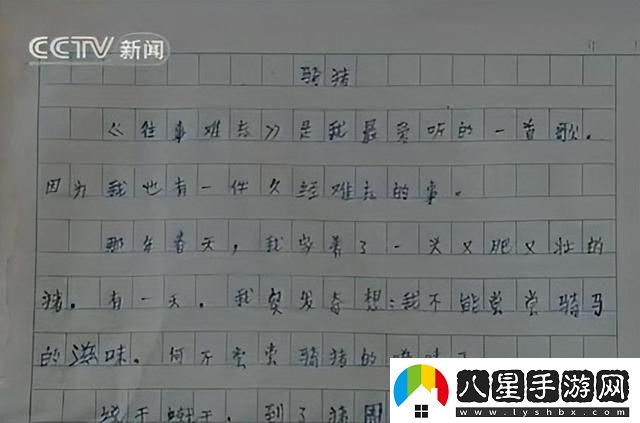 CCTV 新闻
骑猪
《往事难忘》是我最爱听的一首歌。
因为我也有一件久经难忘的事。
那年春天，我家养了一头又肥又壮的
猪。有一天。我突发奇想:我不能尝尝骑马
的滋味。何不尝尝骑猪的滋味
说干就干。到了猪圈
八星手游网
www.lyshbx.com